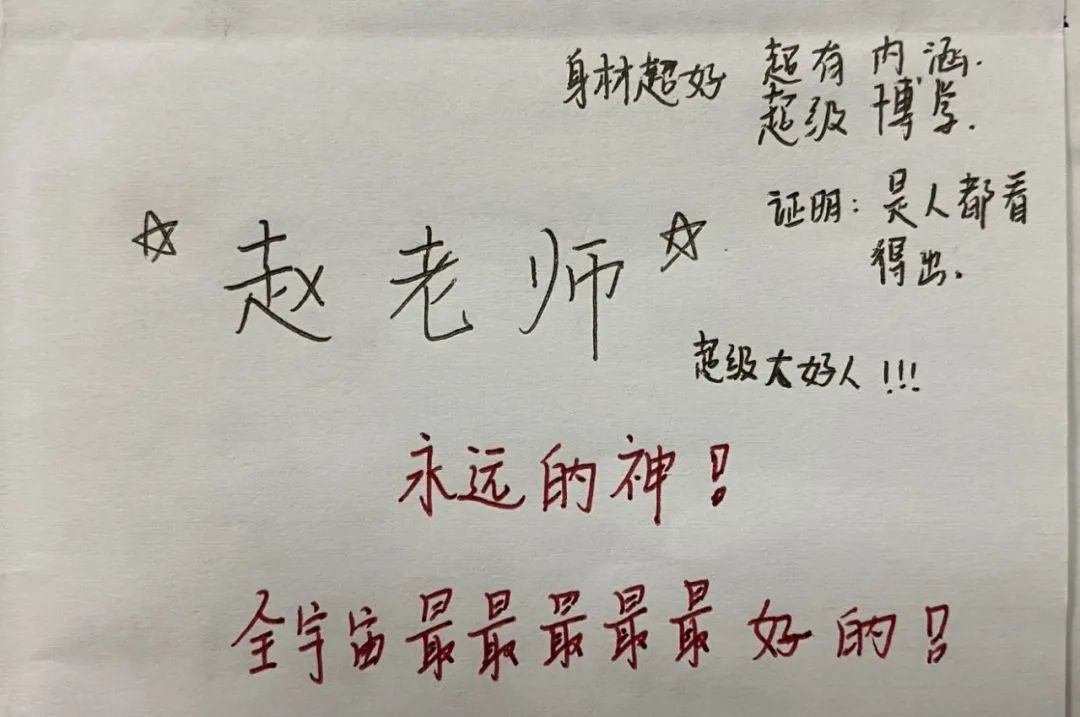 身材超好
超有内涵.
超级博学.
证明:是人都看
得出.
☆赵老师☆
超级大好人!!!
永远的神!
全宇宙最最最最最好的!